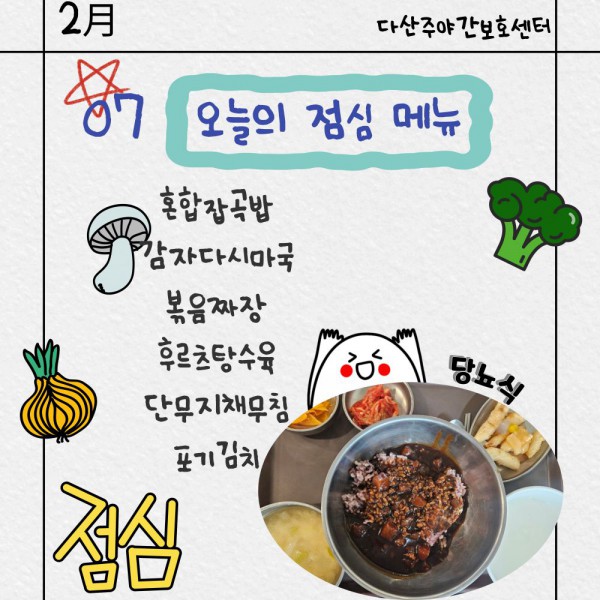 2月
다산주야간보호센터
07
오늘의 점심 메뉴
혼합잡곡밥
감자다시마국
볶음짜장
후르츠탕수육
단무지채무침
포기김치
당뇨식
점심